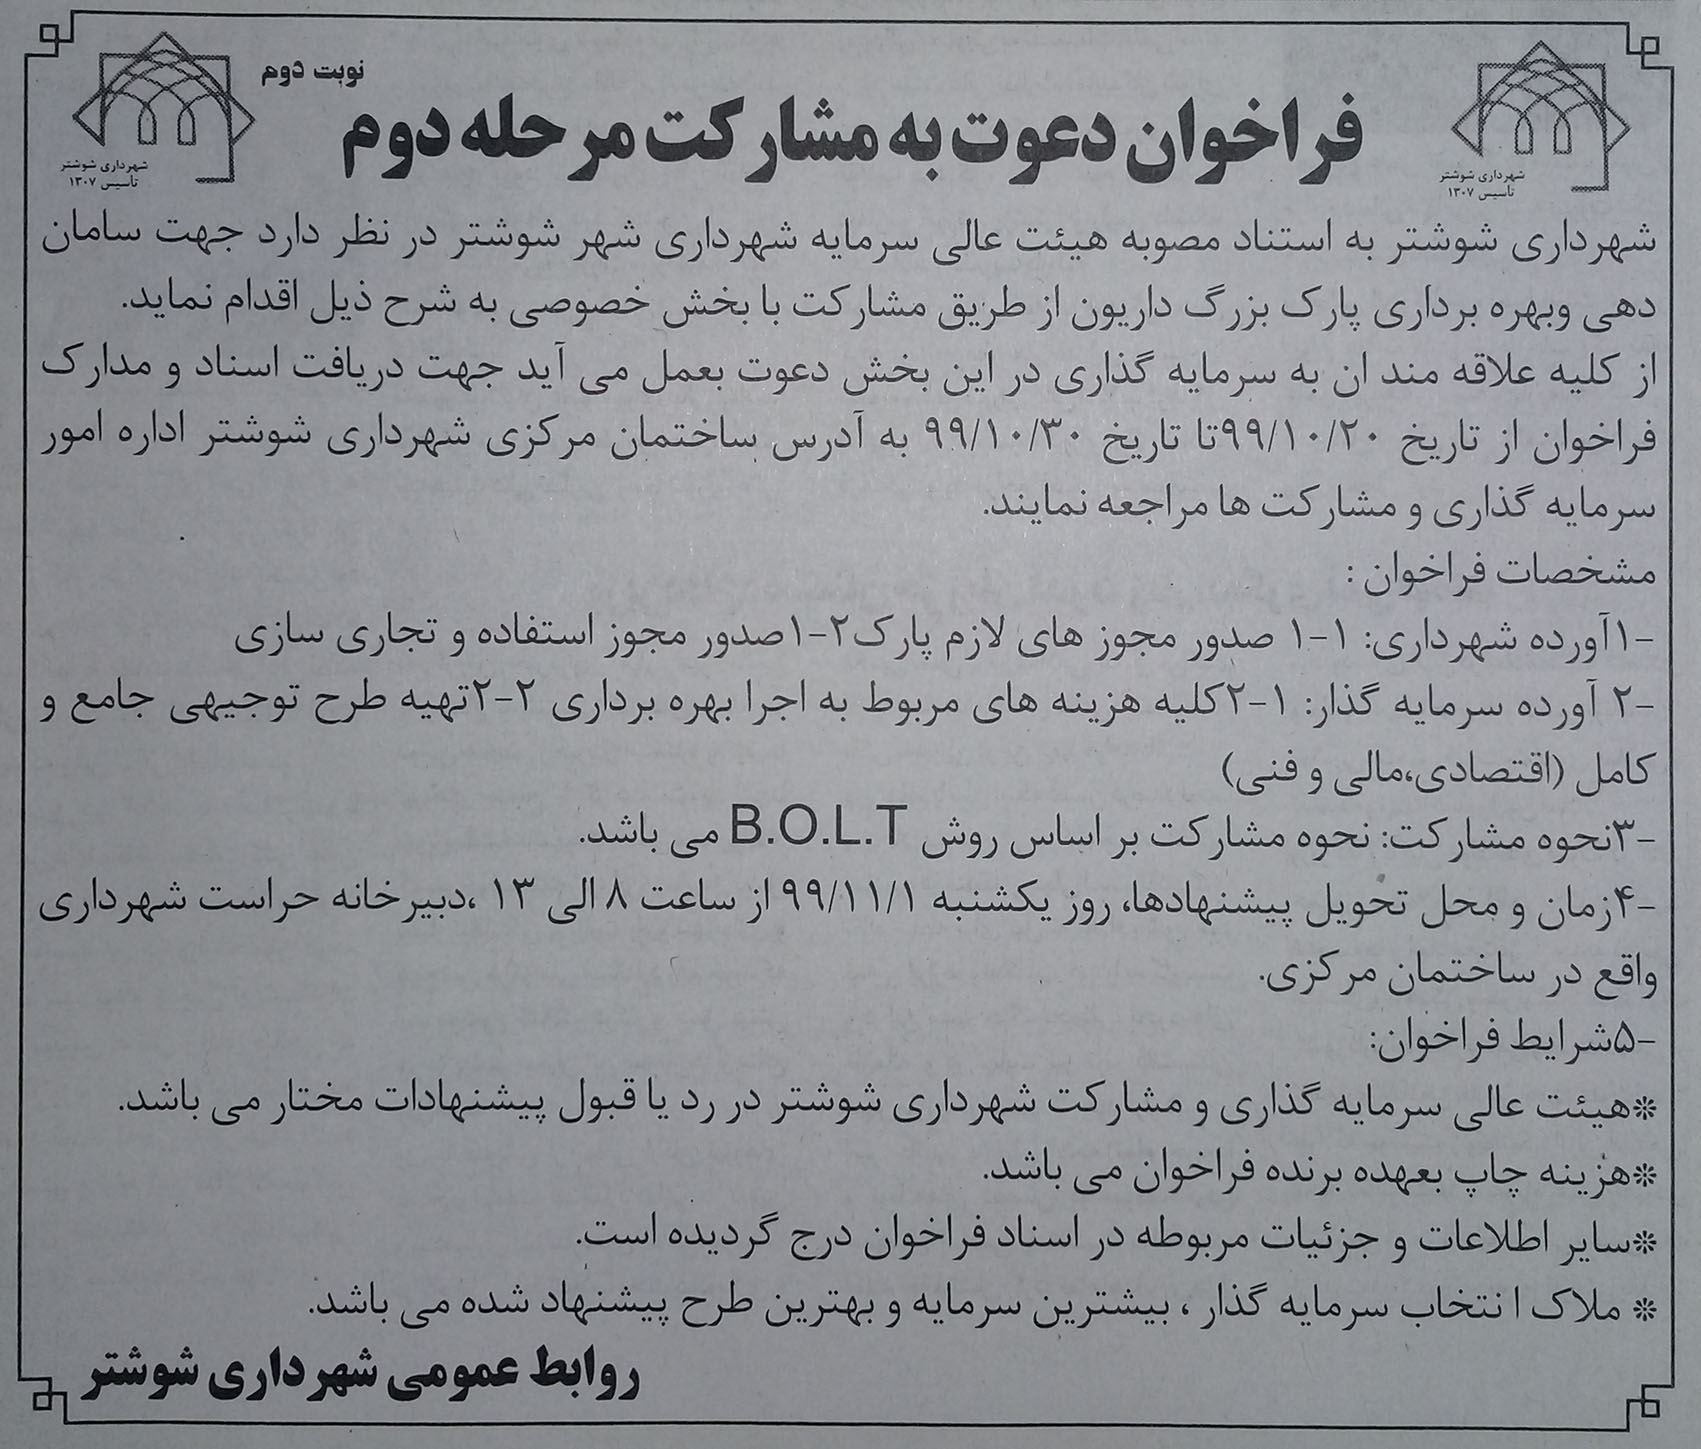 نوبت دوم
فراخوان دعوت به مشارکت مرحله دوم
شهرداری شوشتر
تأسیس ۱۳۰۷
شهرداری شوشتر
تأسیس ۱۳۰۷
شهرداری شوشتر به استناد مصوبه هیئت عالی سرمایه شهرداری شهر شوشتر در نظر دارد جهت سامان
دهی وبهره برداری پارک بزرگ داریون از طریق مشارکت با بخش خصوصی به شرح ذیل اقدام نماید.
از کلیه علاقه مند ان به سرمایه گذاری در این بخش دعوت بعمل می آید جهت دریافت اسناد و مدارک
فراخوان از تاریخ ۹۹/۱۰/۲۰تا تاریخ ۹۹/۱۰/۳۰ به آدرس ساختمان مرکزی شهرداری شوشتر اداره امور
سرمایه گذاری و مشارکت ها مراجعه نمایند.
مشخصات فراخوان :
-۱آورده شهرداری: ۱-۱ صدور مجوز های لازم پارک۲-۱صدور مجوز استفاده و تجاری سازی
-۲ آورده سرمایه گذار: ۱-۲کلیه هزینه های مربوط به اجرا بهره برداری ۲-۲تهیه طرح توجیهی جامع و
کامل (اقتصادی،مالی و فنی)
-۳نحوه مشارکت: نحوه مشارکت بر اساس روش B.O.L.T می باشد.
-۴زمان و محل تحویل پیشنهادها، روز یکشنبه ۹۹/۱۱/۱ از ساعت ۸ الی ۱۳ ،دبیرخانه حراست شهرداری
واقع در ساختمان مرکزی.
-۵شرایط فراخوان:
*هیئت عالی سرمایه گذاری و مشارکت شهرداری شوشتر در رد یا قبول پیشنهادات مختار می باشد.
*هزینه چاپ بعهده برنده فراخوان می باشد.
*سایر اطلاعات و جزئیات مربوطه در اسناد فراخوان درج گردیده است.
* ملاک ا نتخاب سرمایه گذار ، بیشترین سرمایه و بهترین طرح پیشنهاد شده می باشد.
روابط عمومی شهرداری شوشتر